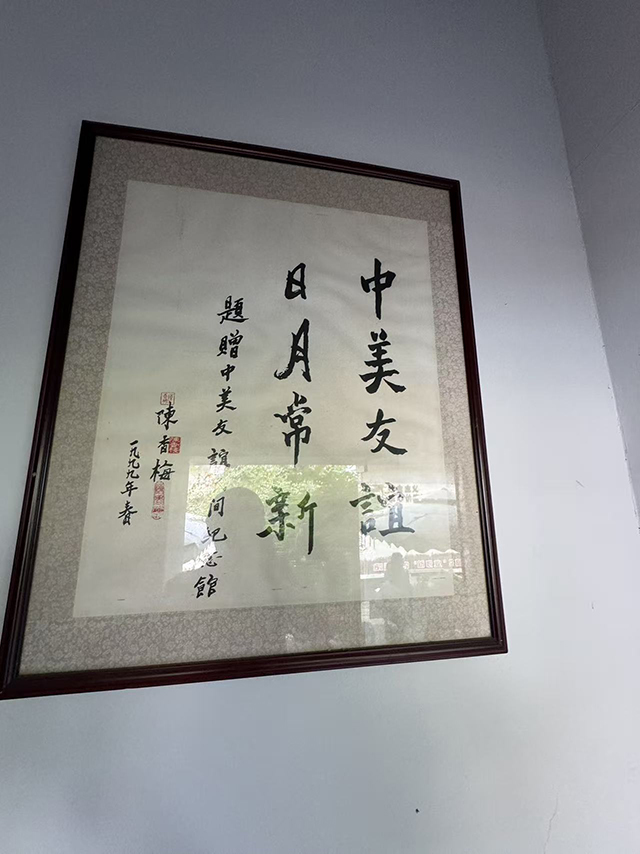 中美友誼
日月常新
題贈中美友誼 间紀念館
陳香梅
一九九九年春